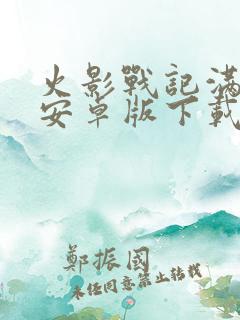 火影戰記滿
安卓版下載
鄭振國
未经同意禁止转载